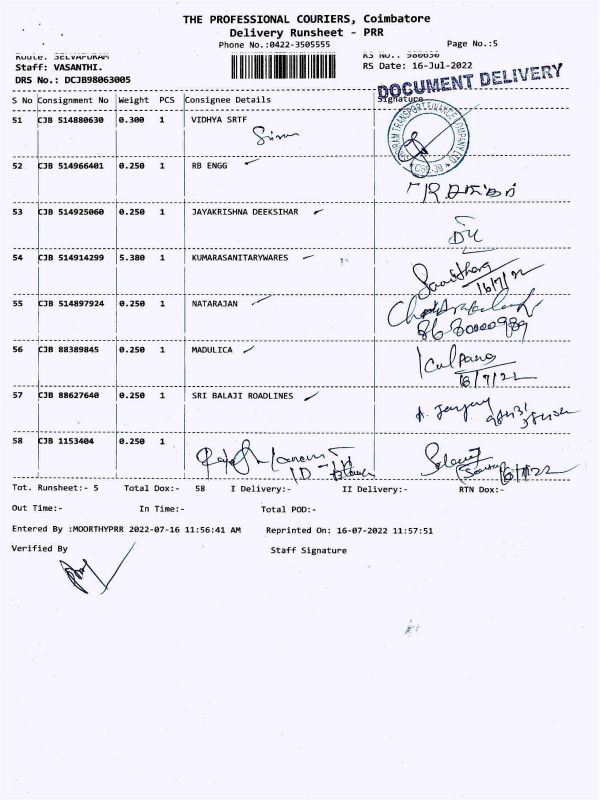 THE PROFESSIONAL COURIERS, Coimbatore
Delivery Runsheet - PRR
Phone No.:0422-3505555
Page No.:5
Route: SELVAPURAM
RS No.: 980630
Staff: VASANTHI.
RS Date: 16-Jul-2022
DRS No.: DCJB98063005
DOCUMENT DELIVERY
S No Consignment No Weight PCS Consignee Details Signature
51 CJB 514880630 0.300 1 VIDHYA SRTF
52 CJB 514966401 0.250 1 RB ENGG
53 CJB 514925060 0.250 1 JAYAKRISHNA DEEKSIHAR
54 CJB 514914299 5.380 1 KUMARASANITARYWARES
16/7/22
55 CJB 514897924 0.250 1 NATARAJAN
56 CJB 88389845 0.250 1 MADULICA
Kalpana
16/7/22
57 CJB 88627640 0.250 1 SRI BALAJI ROADLINES
58 CJB 1153404 0.250 1
16/7/22
Tot. Runsheet:- 5 Total Dox:- 58 I Delivery:- II Delivery:- RTN Dox:-
Out Time:- In Time:- Total POD:-
Entered By :MOORTHYPRR 2022-07-16 11:56:41 AM Reprinted On: 16-07-2022 11:57:51
Verified By Staff Signature